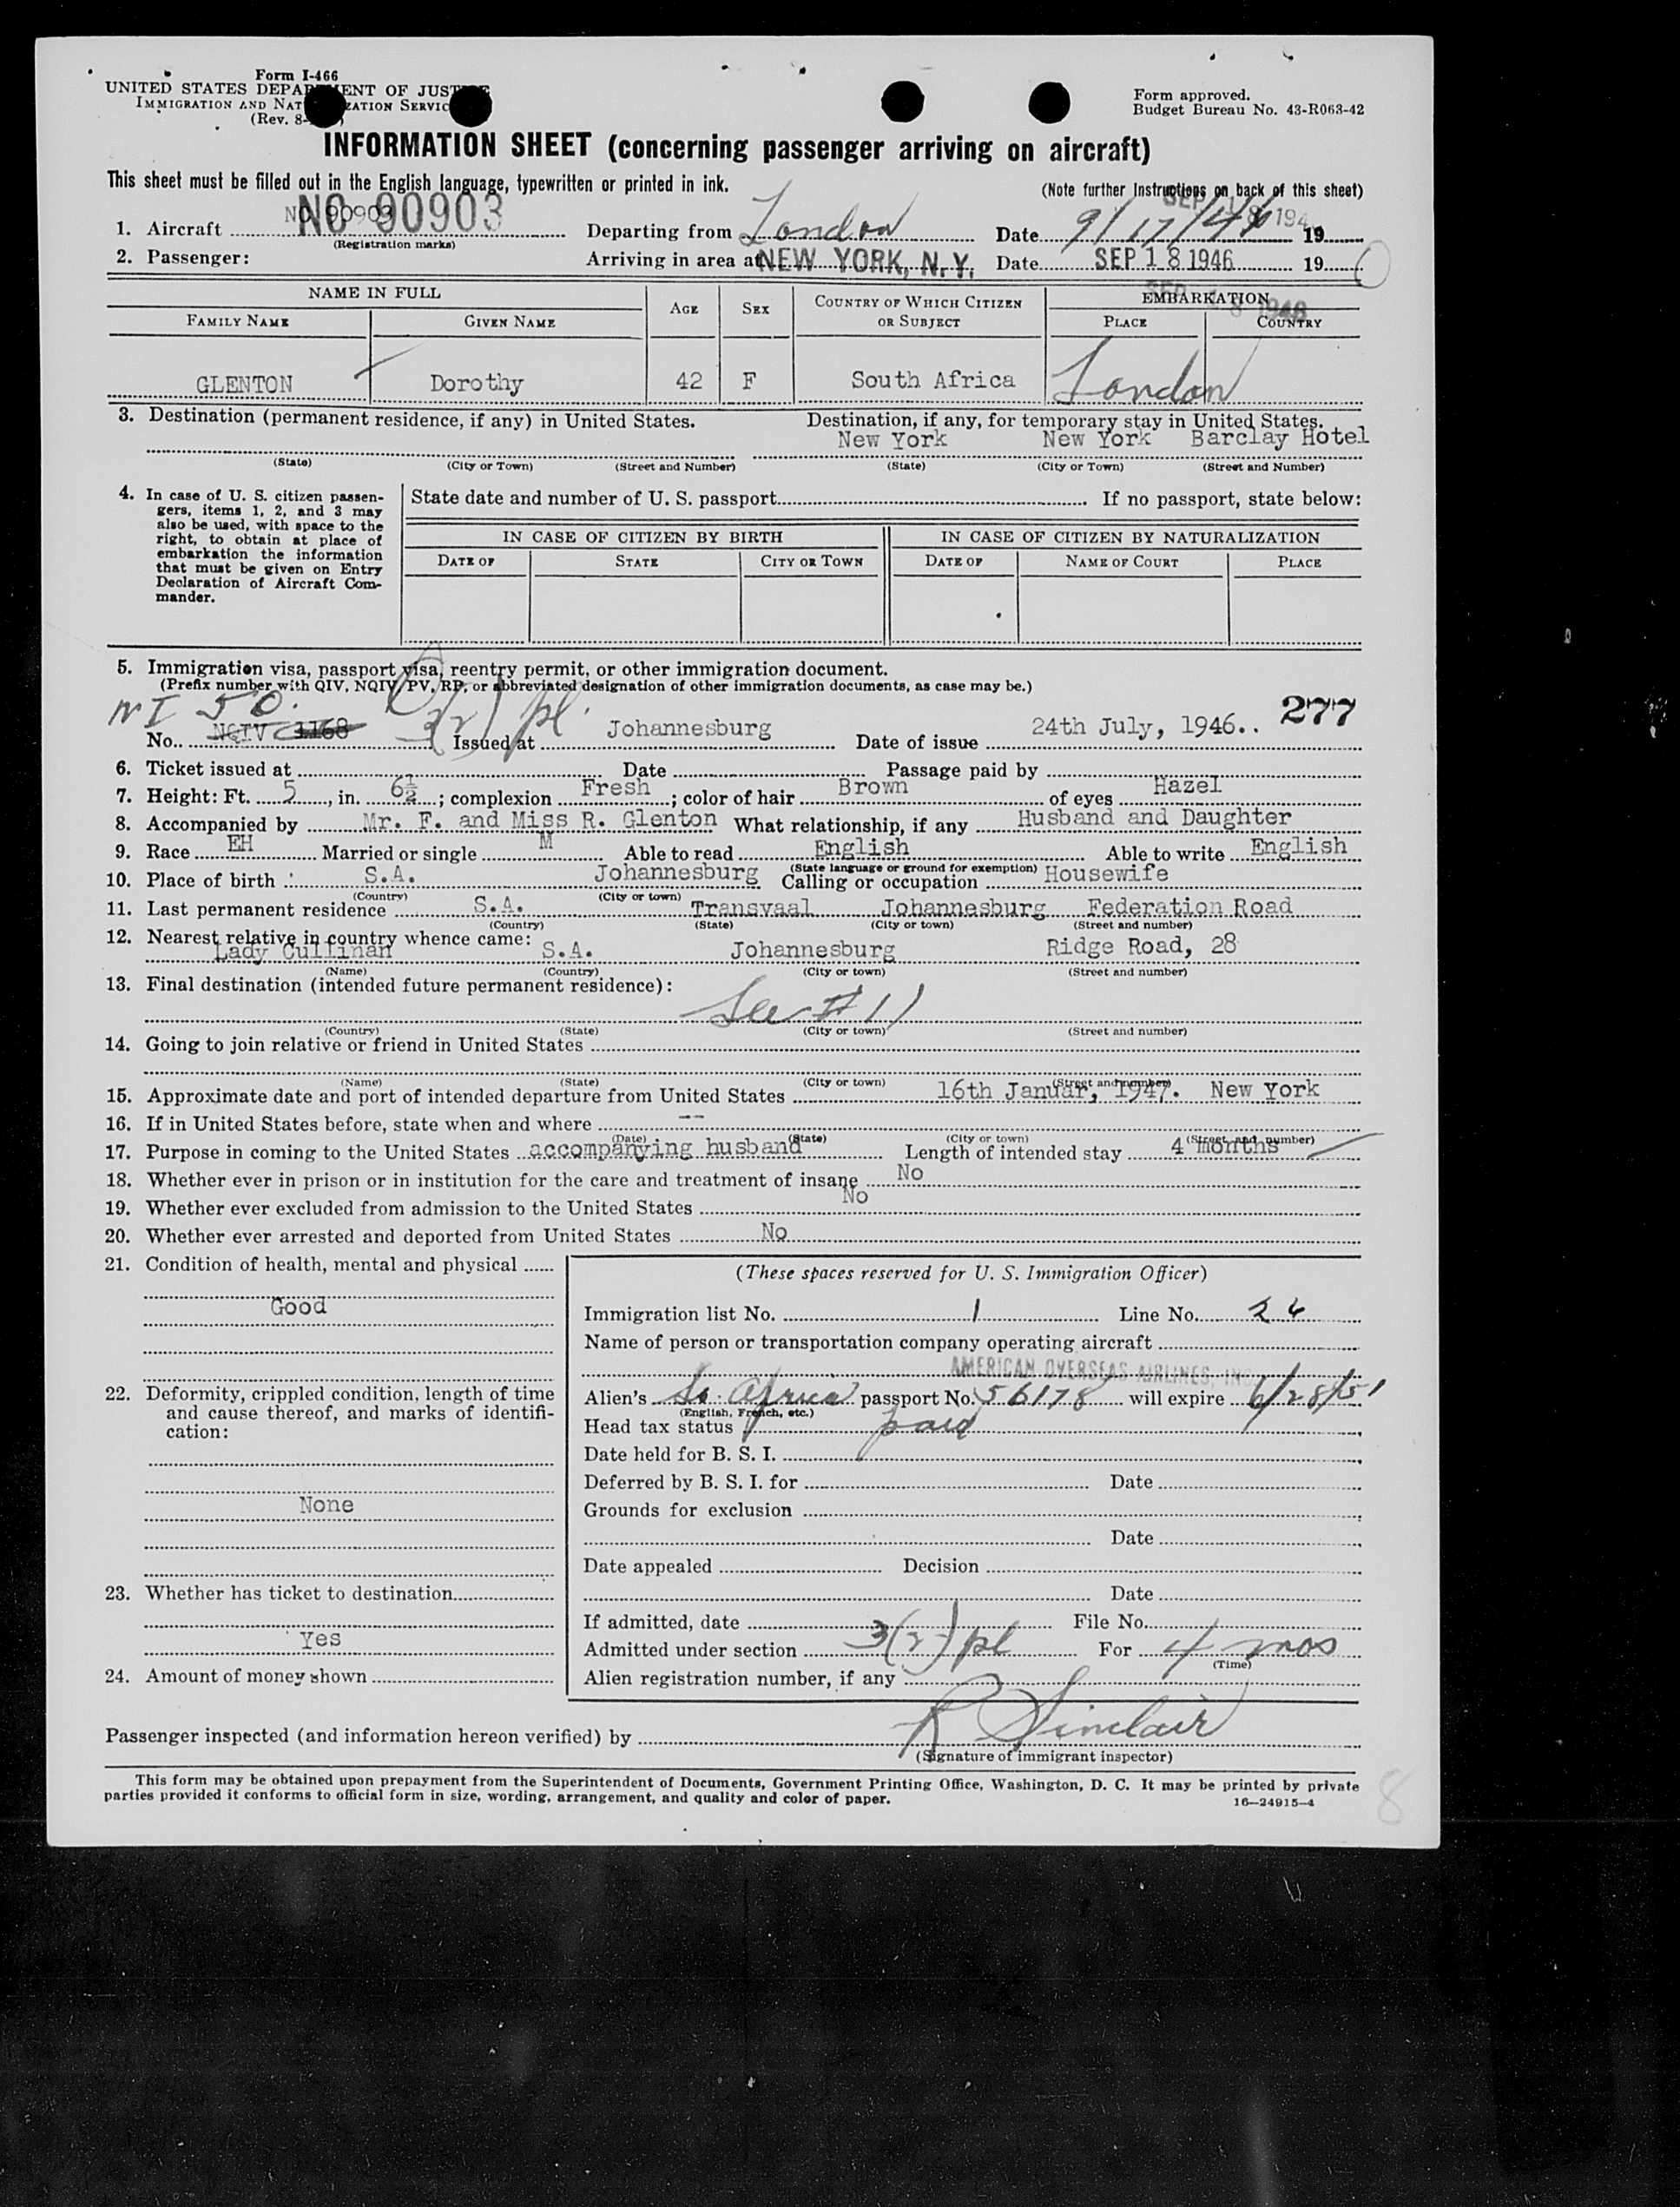 Form I-466
UNITED STATES DEPARTMENT OF JUSTICE
IMMIGRATION AND NATURALIZATION SERVICE
(Rev. 8-
Form approved.
Budget Bureau No. 43-R063-42
INFORMATION SHEET (concerning passenger arriving on aircraft)
This sheet must be filled out in the English language, typewritten or printed in ink.
(Note further Instructions on back of this sheet)
1. Aircraft NC 90903 NC 90903 Departing from London Date 9/17/46 SEP 18 194 19
(Registration marks)
2. Passenger: Arriving in area at NEW YORK, N.Y. Date SEP 18 1946 19
NAME IN FULL AGE SEX COUNTRY OF WHICH CITIZEN OR SUBJECT EMBARKATION
FAMILY NAME GIVEN NAME PLACE COUNTRY
GLENTON Dorothy 42 F South Africa London
3. Destination (permanent residence, if any) in United States. Destination, if any, for temporary stay in United States.
New York New York Barclay Hotel
(State) (City or Town) (Street and Number) (State) (City or Town) (Street and Number)
4. In case of U. S. citizen passengers, items 1, 2, and 3 may also be used, with space to the right, to obtain at place of embarkation the information that must be given on Entry Declaration of Aircraft Commander.
State date and number of U. S. passport If no passport, state below:
IN CASE OF CITIZEN BY BIRTH IN CASE OF CITIZEN BY NATURALIZATION
DATE OF STATE CITY OR TOWN DATE OF NAME OF COURT PLACE
5. Immigration visa, passport visa, reentry permit, or other immigration document.
(Prefix number with QIV, NQIV, PV, RP, or abbreviated designation of other immigration documents, as case may be.)
NI 50. 3(2) pl. 277
No. NQIV 1168 Issued at Johannesburg Date of issue 24th July, 1946..
6. Ticket issued at Date Passage paid by
7. Height: Ft. 5, in. 6½; complexion Fresh; color of hair Brown of eyes Hazel
8. Accompanied by Mr. F. and Miss R. Glenton What relationship, if any Husband and Daughter
9. Race EH Married or single M Able to read English Able to write English
(State language or ground for exemption)
10. Place of birth S.A. Johannesburg Calling or occupation Housewife
(Country) (City or town)
11. Last permanent residence S.A. Transvaal Johannesburg Federation Road
(Country) (State) (City or town) (Street and number)
12. Nearest relative in country whence came:
Lady Cullinan S.A. Johannesburg Ridge Road, 28
(Name) (Country) (City or town) (Street and number)
13. Final destination (intended future permanent residence):
See # 11
(Country) (State) (City or town) (Street and number)
14. Going to join relative or friend in United States
(Name) (State) (City or town) (Street and number)
15. Approximate date and port of intended departure from United States 16th Januar, 1947. New York
16. If in United States before, state when and where --
(Date) (State) (City or town) (Street and number)
17. Purpose in coming to the United States accompanying husband Length of intended stay 4 months
18. Whether ever in prison or in institution for the care and treatment of insane No
19. Whether ever excluded from admission to the United States No
20. Whether ever arrested and deported from United States No
21. Condition of health, mental and physical
Good
22. Deformity, crippled condition, length of time and cause thereof, and marks of identification:
None
23. Whether has ticket to destination
Yes
24. Amount of money shown
(These spaces reserved for U. S. Immigration Officer)
Immigration list No. 1 Line No. 26
Name of person or transportation company operating aircraft
AMERICAN OVERSEAS AIRLINES, INC.
Alien's So. Africa passport No. 56178 will expire 6/28/51
(English, French, etc.)
Head tax status paid
Date held for B. S. I.
Deferred by B. S. I. for Date
Grounds for exclusion
Date
Date appealed Decision
Date
If admitted, date File No.
Admitted under section 3(2) pl For 4 mos
(Time)
Alien registration number, if any
Passenger inspected (and information hereon verified) by R Sinclair
(Signature of immigrant inspector)
This form may be obtained upon prepayment from the Superintendent of Documents, Government Printing Office, Washington, D. C. It may be printed by private
parties provided it conforms to official form in size, wording, arrangement, and quality and color of paper.
16—24915-4
8